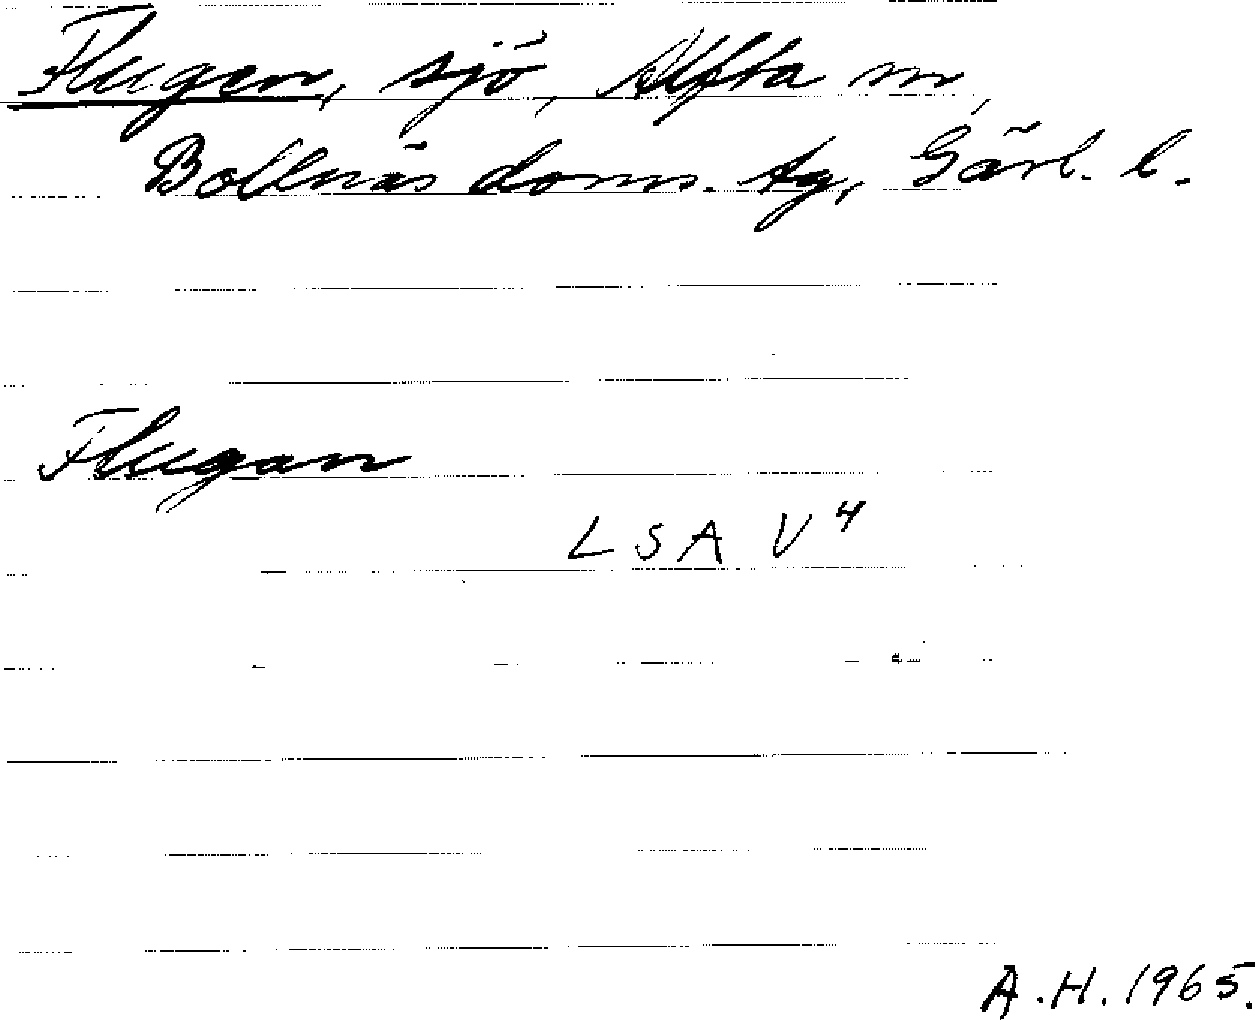 Flugen, sjö, Alfta sn,
Bollnäs doms. tg, Gävl. l.
Flugan
LSA V4
A.H. 1965.